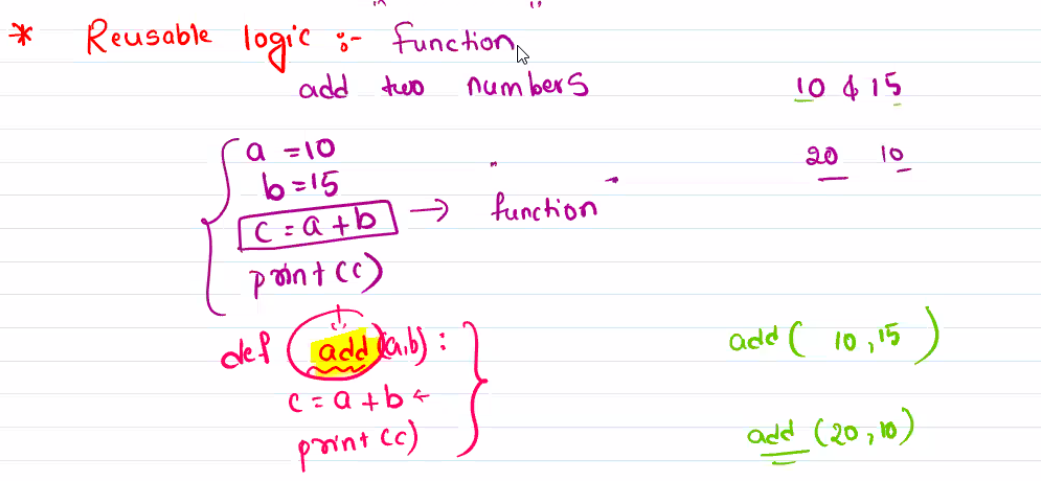 * Reusable logic :- function
add two numbers 10 & 15
a = 10 20 10
b = 15
c = a + b → function
print(c)
def add(a,b): add( 10,15 )
c = a + b ←
print(c) add (20,10)